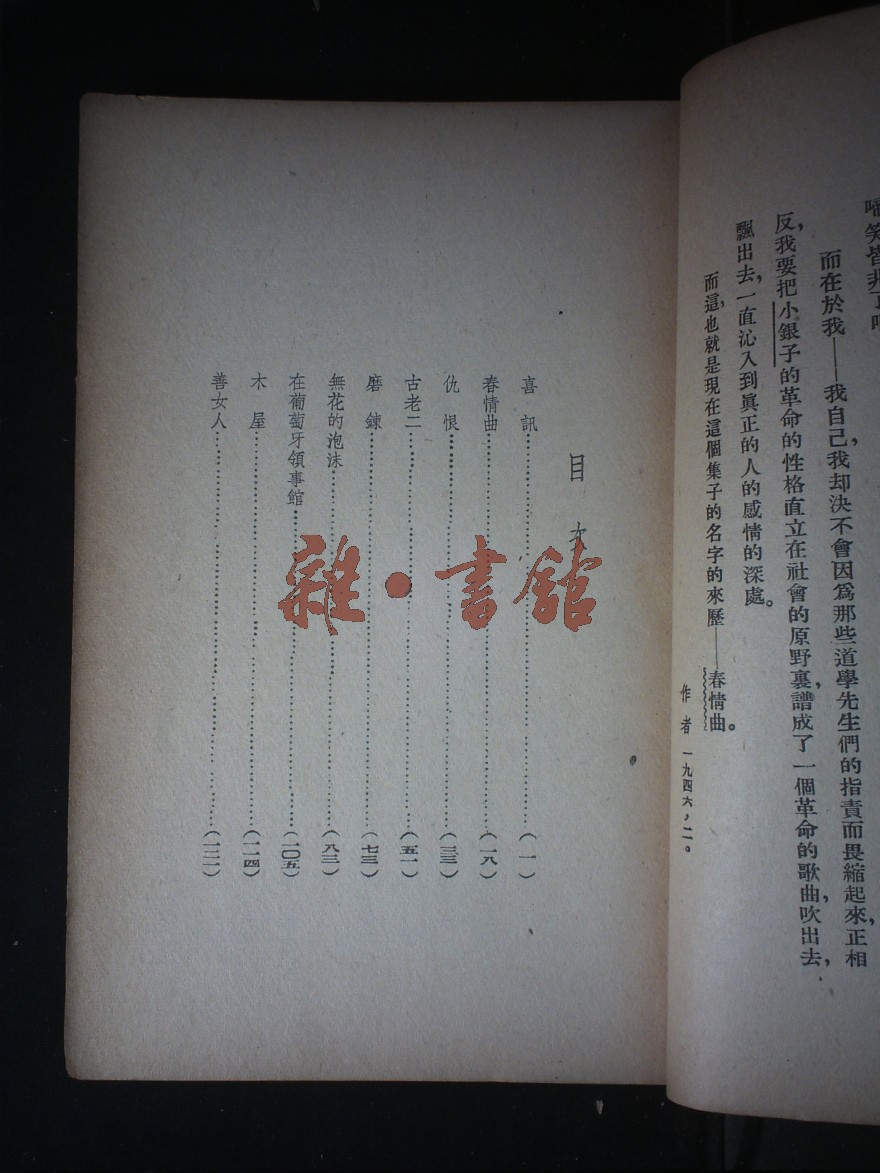 啼笑皆非了
而在於我——我自己，我却決不會因爲那些道學先生們的指責而畏縮起來，正相
反，我要把小銀子的革命的性格直立在社會的原野裏，譜成了一個革命的歌曲，吹出去，
飄出去，一直沁入到眞正的人的感情的深處。
而這，也就是現在這個集子的名字的來歷——春情曲。
作者 一九四六，二。
目
喜訊……（一）
春情曲……（一八）
仇恨……（三三）
古老二……（五一）
磨鍊……（七三）
無花的泡沫……（八三）
在葡萄牙領事館……（一〇五）
木屋……（一一四）
善女人……（一三一）
雜·書館